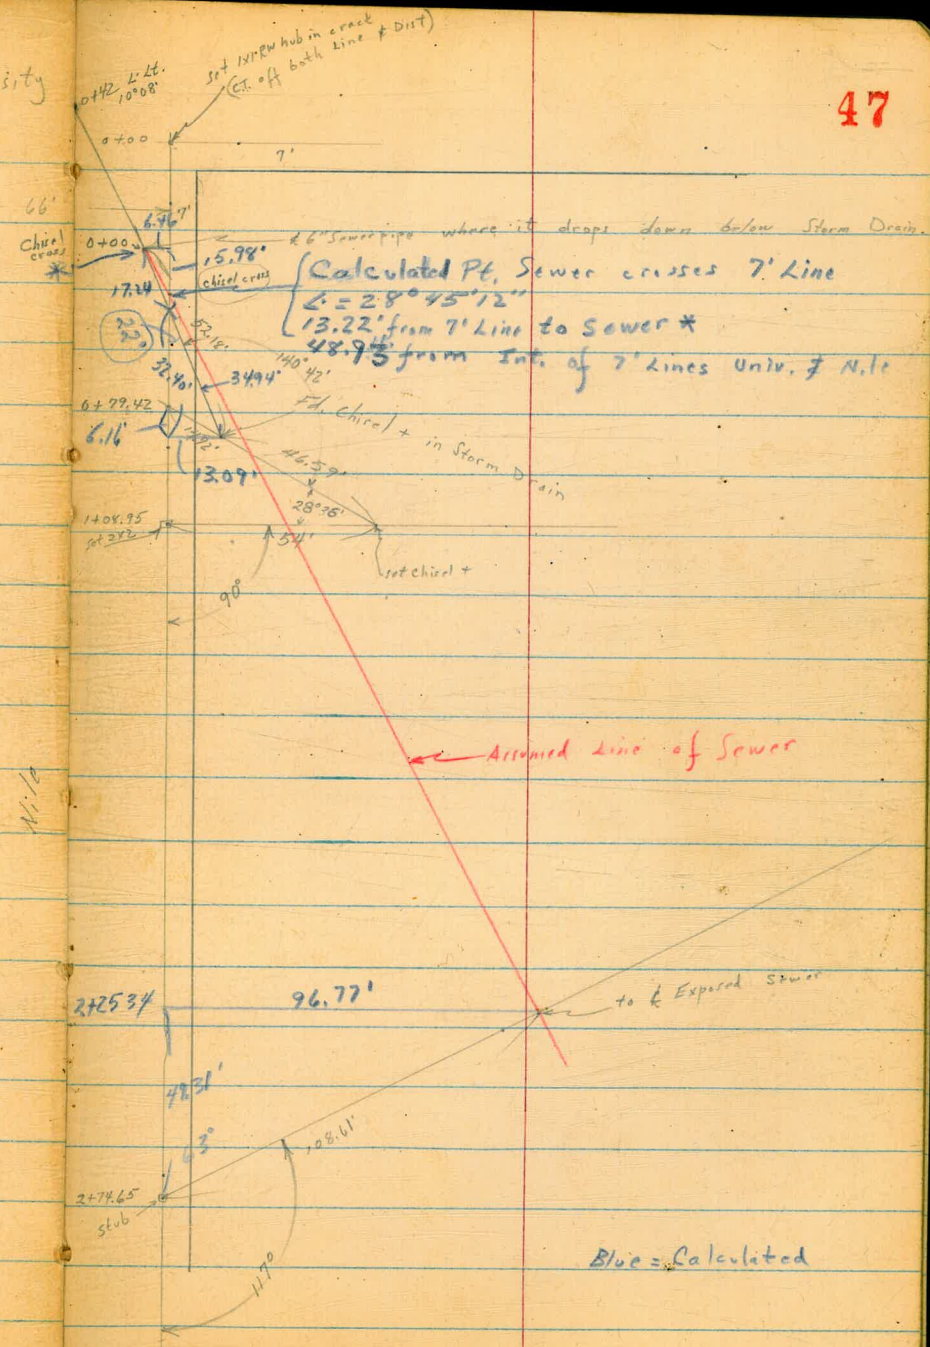 47
sity
0+42 L Lt.
10°08'
set 1x1 RW hub in crack
(C.T. off both Line & Dist)
0+00
7'
66'
6.46'
7'
Chisel
cross
*
0+00
℄ 6" Sewer pipe where it drops down below Storm Drain.
15.98'
chisel cross
17.24
Calculated Pt. Sewer crosses 7' Line
∠ = 28° 45' 12"
13.22' from 7' Line to Sewer *
from Int. of 7' Lines Univ. & Nile
22°
52.18'
140°
42'
32.40'
34.94'
0+79.42
Fd. Chisel + in Storm Drain
6.16'
13.09'
46.59'
28°36'
1+04.95
set 2x2
54'
set chisel +
90°
Assumed Line of Sewer
Nile
2+25.34
96.77'
to ℄ Exposed Sewer
49.31'
63°
108.61'
2+74.65
stub
117°
Blue = Calculated